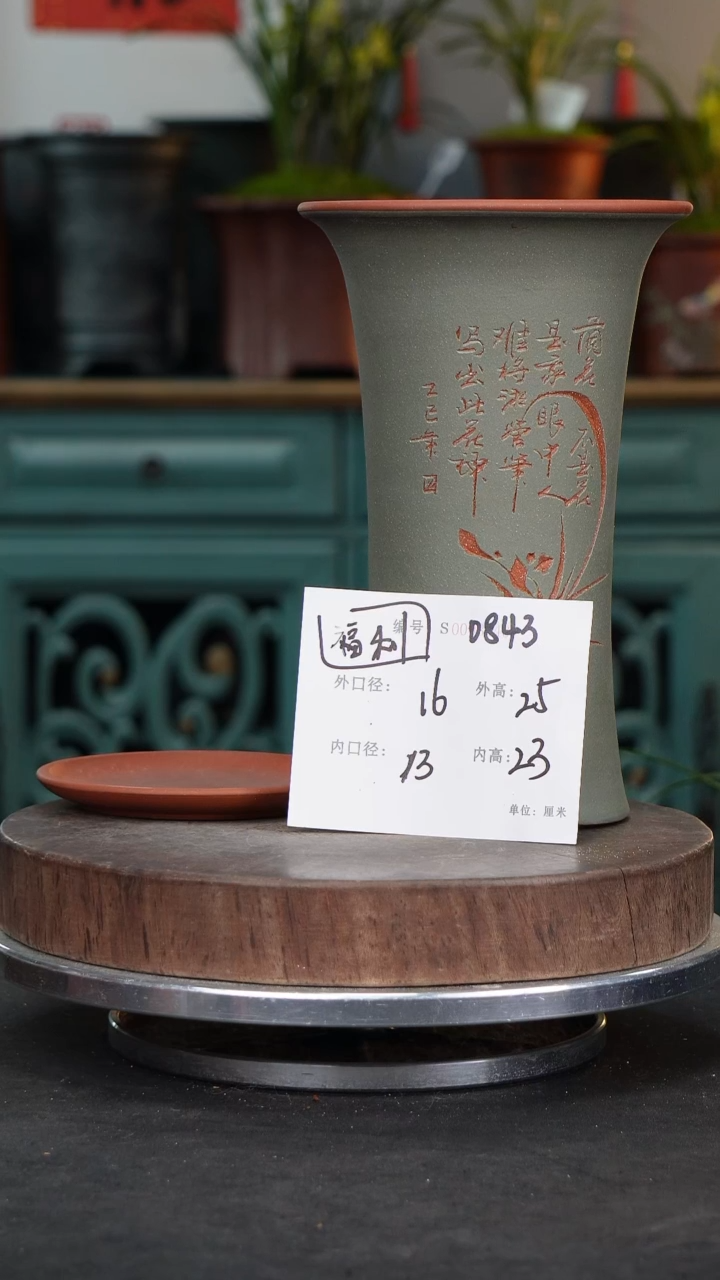 蘭花不是花
是我眼中人
难将湘管笔
写出此花神
乙巳年
福和 编号 S000843
外口径: 16 外高: 25
内口径: 13 内高: 23
单位: 厘米